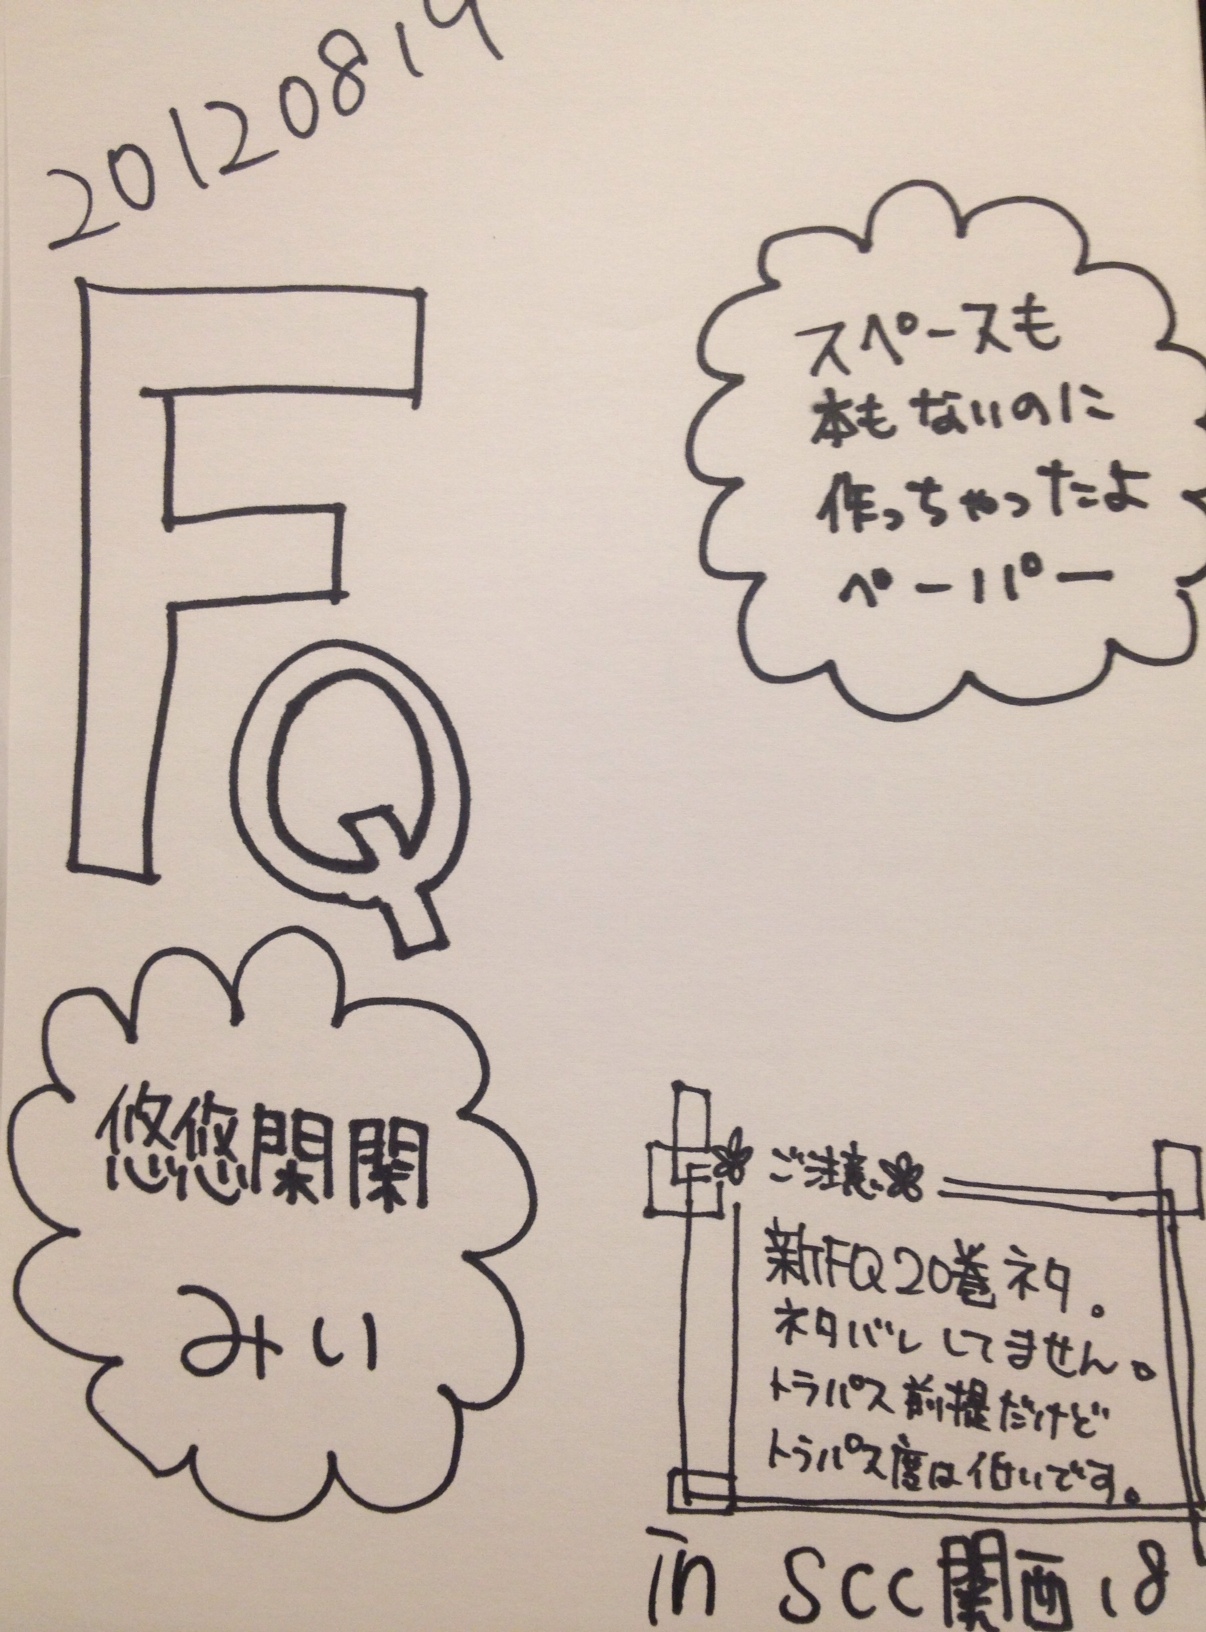 20120819
FQ
スペースも
本もないのに
作っちゃったよ
ペーパー
悠悠閑閑
みい
ご注意
新FQ20巻ネタ。
ネタバレしてません。
トラパス前提だけど
トラパス度は低いです。
in SCC関西18